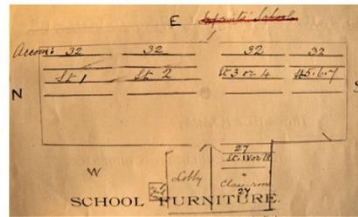 E Infants School
Accom: 32 32 32 32
St 1 St 2 St 3 or 4 St 5.6.7
N
S
27
St. 1 or 11
W
Lobby
Class-room
27
SCHOOL FURNITURE.